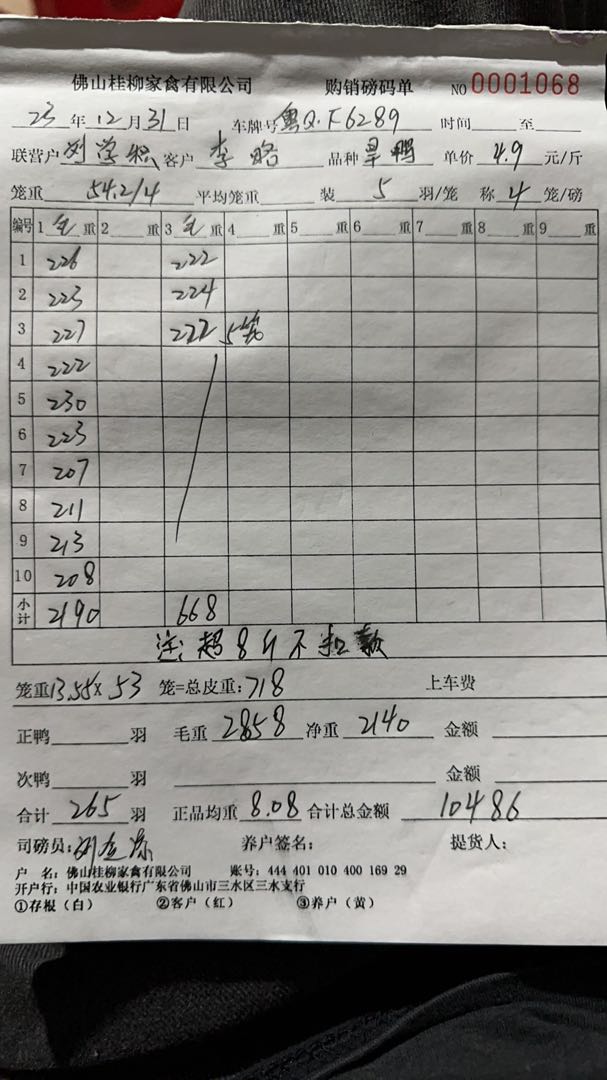 佛山桂柳家禽有限公司 购销磅码单 NO 0001068
23年12月31日 车牌号 粤Q.F6289 时间 至
联营户 刘学 客户 李略 品种 旱鸭 单价 4.9 元/斤
笼重 54.2/4 平均笼重 装 5 羽/笼 称 4 笼/磅
编号 1 毛 重 2 重 3 毛 重 4 重 5 重 6 重 7 重 8 重 9 重
1 226 222
2 223 224
3 227 222 5笼
4 222
5 230
6 223
7 207
8 211
9 213
10 208
小计 2190 668
注: 超8斤不扣款
笼重13.55X 53 笼=总皮重:718 上车费
正鸭 羽 毛重 2858 净重 2140 金额
次鸭 羽 金额
合计 265 羽 正品均重 8.08 合计总金额 10486
司磅员: 养户签名: 提货人:
户 名: 佛山桂柳家禽有限公司 账号: 444 401 010 400 169 29
开户行: 中国农业银行广东省佛山市三水区三水支行
①存根(白) ②客户(红) ③养户(黄)